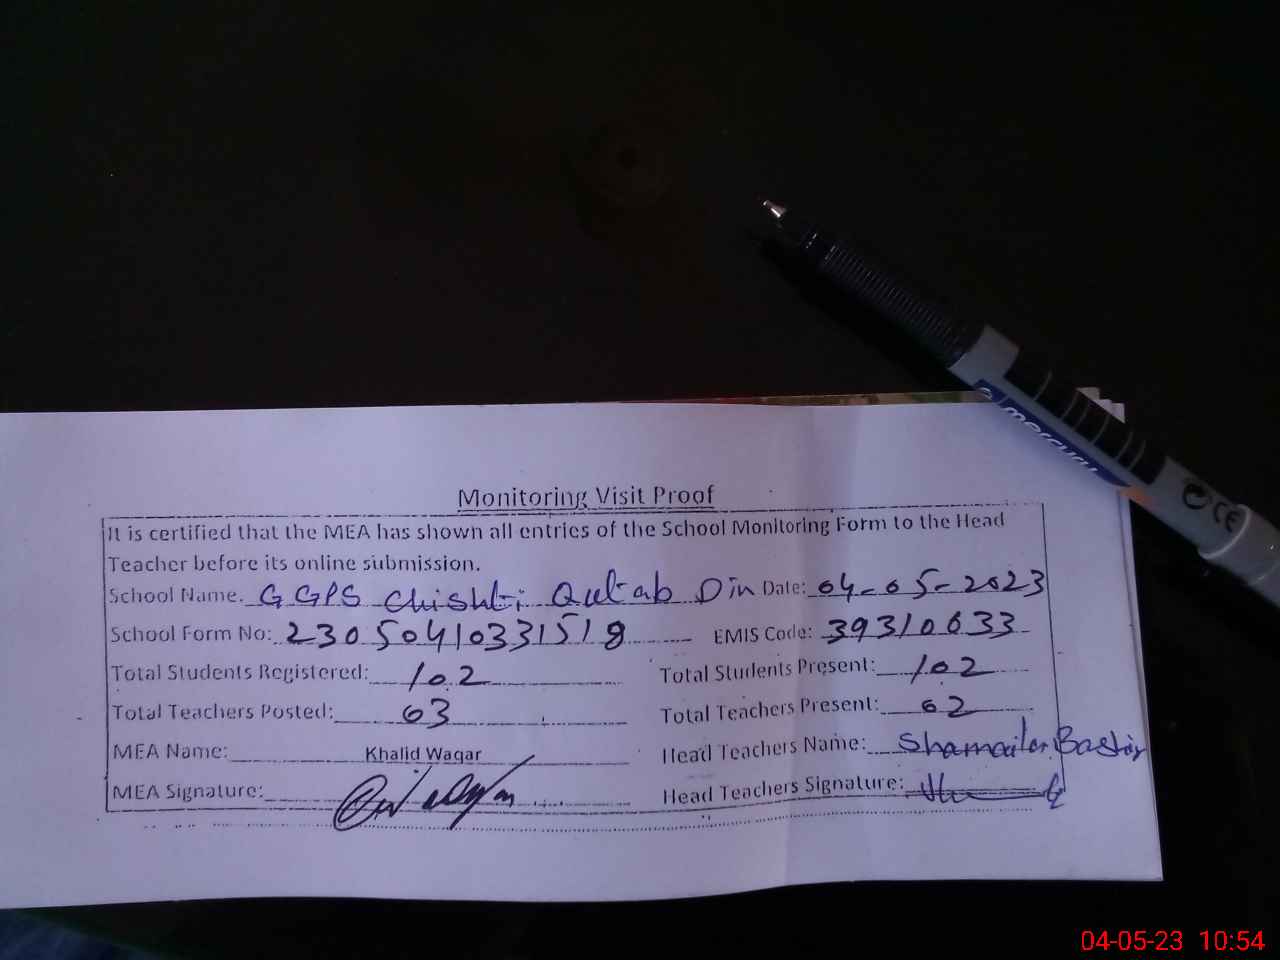 mercury
CE
Monitoring Visit Proof
It is certified that the MEA has shown all entries of the School Monitoring Form to the Head
Teacher before its online submission.
School Name. G GPS Chishti Qutab Din Date: 04-05-2023
School Form No: 23050410331518 EMIS Code: 39310633
Total Students Registered: 102 Total Students Present: 102
Total Teachers Posted: 03 Total Teachers Present: 02
MEA Name: Khalid Waqar Head Teachers Name: Shamaila Bashir
MEA Signature: Head Teachers Signature:
04-05-23 10:54